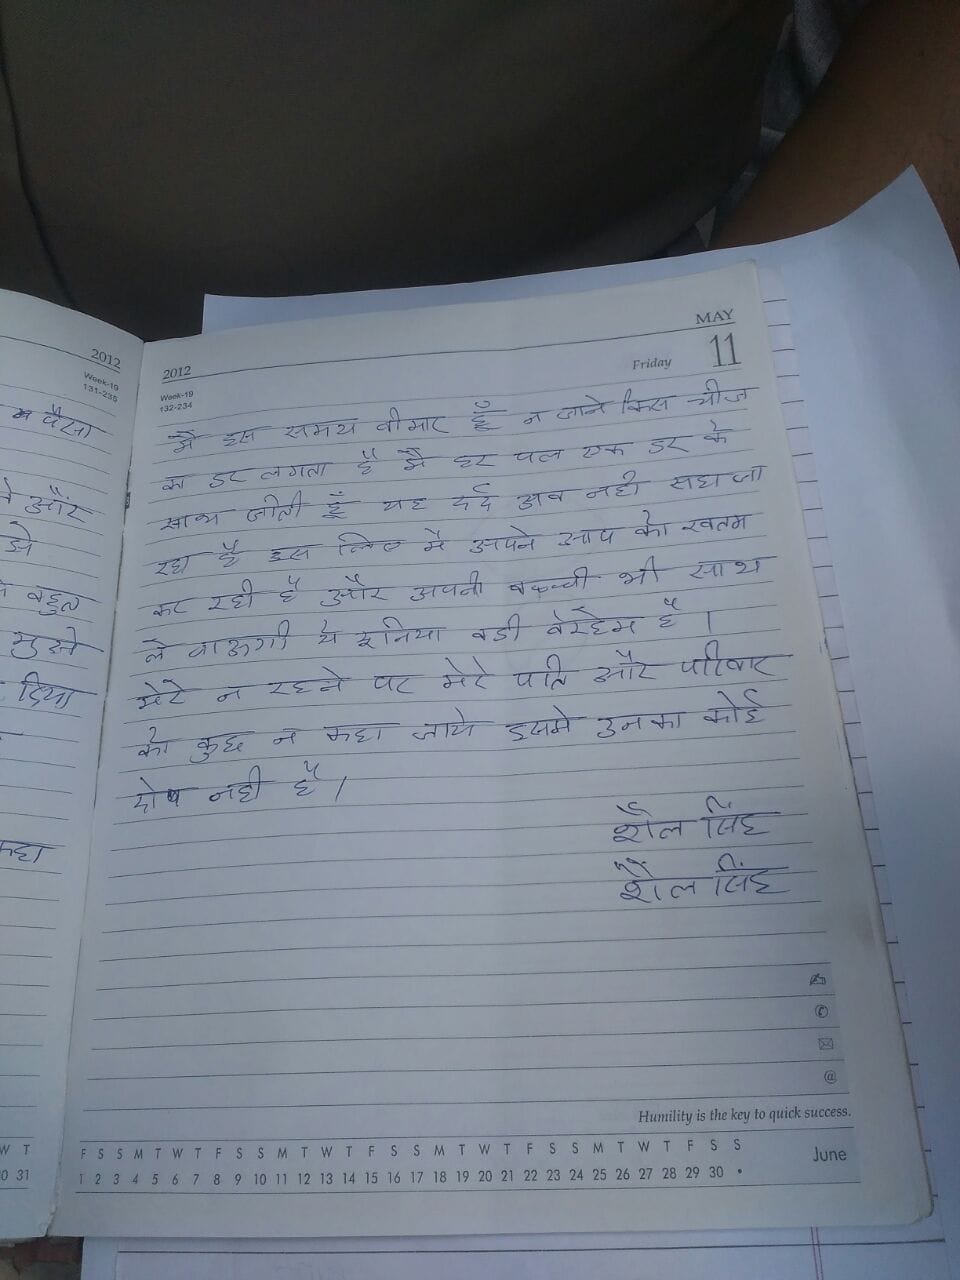 2012
Week-19
131-235
पैसा
और
झे
बहुत
मुझे
दिया
कहा
W T
30 31
2012
Week-19
132-234
MAY
Friday 11
मै इस समय बीमार हूँ न जाने किस चीज
का डर लगता है मै हर पल एक डर के
साथ जीती हूँ यह दर्द अब नही सहा जा
रहा है इस लिए मै अपने आप को खतम
कर रही है और अपनी बच्ची भी साथ
ले जाऊगी ये दुनिया बडी बेरहम है ।
मेरे न रहने पर मेरे पति और परिवार
को कुछ न कहा जाये इसमे उनका कोई
दोष नही है ।
शैल सिंह
शैल सिंह
@
Humility is the key to quick success.
F S S M T W T F S S M T W T F S S M T W T F S S M T W T F S S
1 2 3 4 5 6 7 8 9 10 11 12 13 14 15 16 17 18 19 20 21 22 23 24 25 26 27 28 29 30 •
June